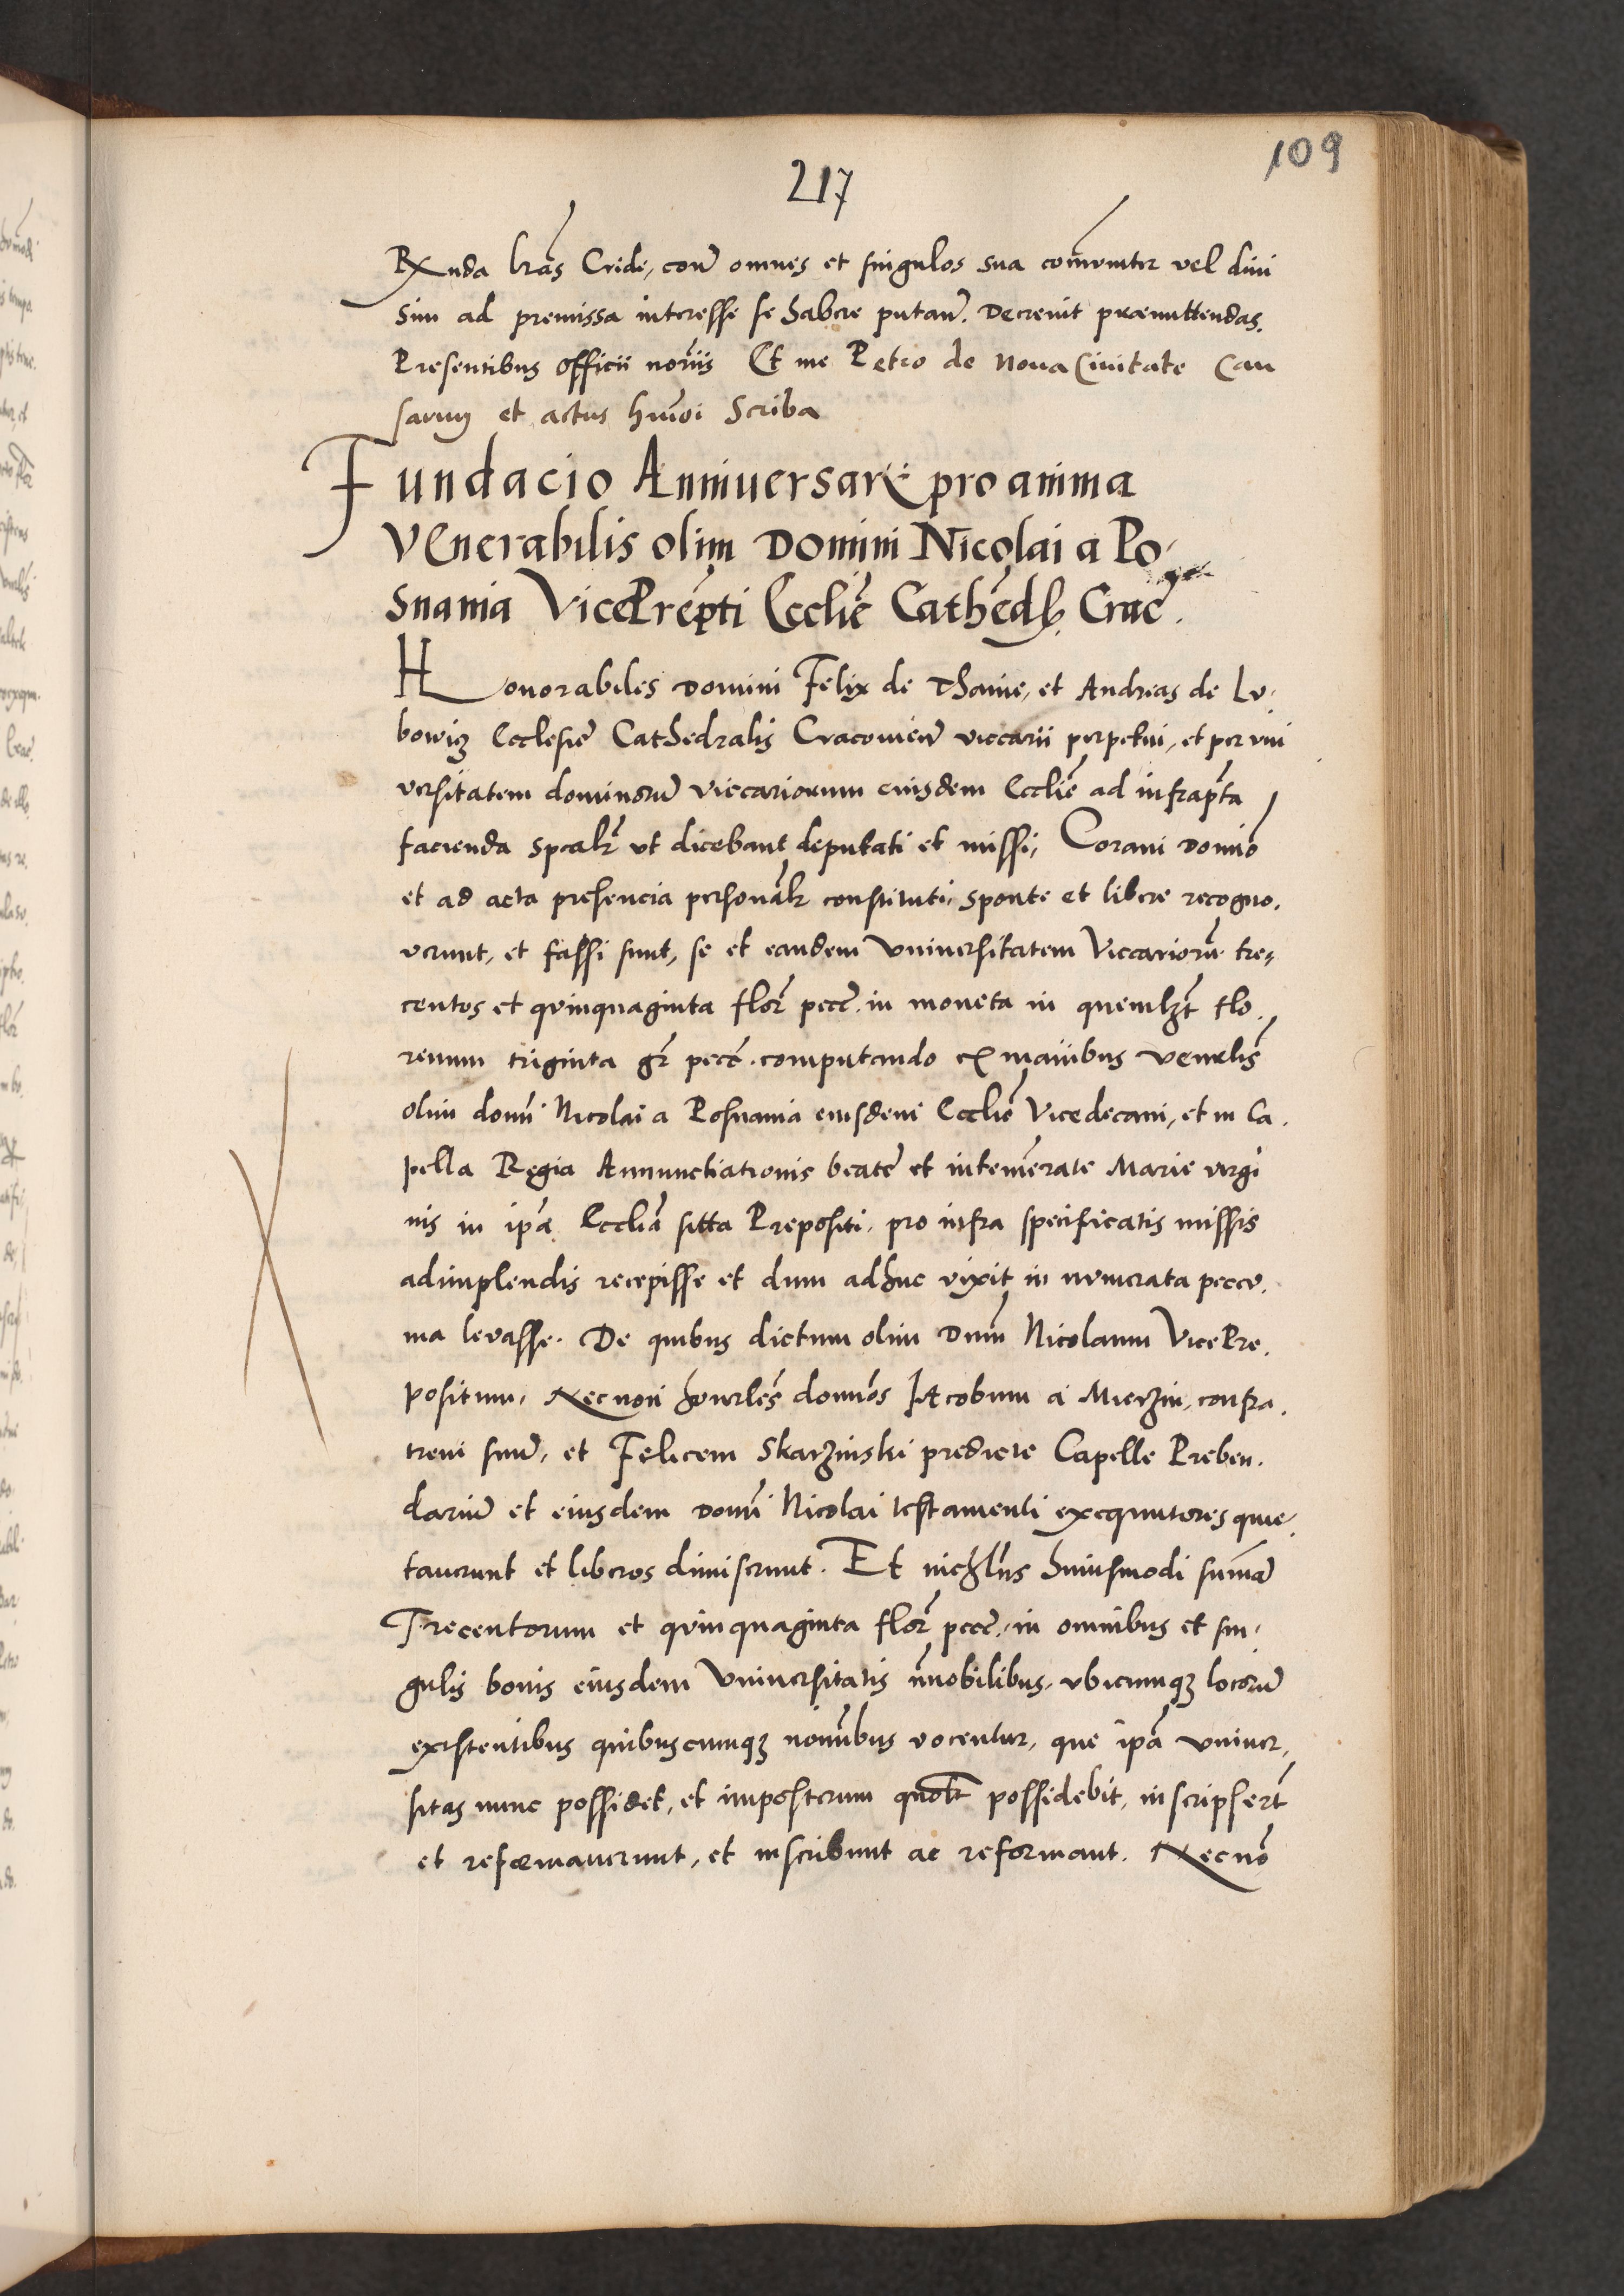 109
217
Rxnda lrãs Cride, contr omnes et singulos sua comuniter vel divi
sim ad premissa interesse se habere putan. Decrevit præmittendas.
Presentibus officii norijs Et me Petro de Nova Civitate Cau
sarum et actus humoi Scriba
Fundacio Anniversarii pro anima
Venerabilis olim Domini Nicolai a Po-
snania VicePrepti Ecclie Cathedl. Crac.
Honorabiles domini Felix de Thanie, et Andreas de Lu-
bowicz Ecclesie Cathedralis Cracovien viccarii perpetui, et per uni
versitatem dominoru viccariorum eiusdem Ecclie ad infrapta
facienda spealr ut dicebant deputati et missi, Coram domio
et ad acta presencia personalr constituti, sponte et libere recogno-
verunt, et fassi sunt, se et eandem Universitatem Viccarioru tre-
centos et quinquaginta flor pecc. in moneta in quemlzt flo-
renum triginta gr pecc. computando ex manibus venrlis
olim domi Nicolai a Posnania eiusdem Ecclie Vicedecani, et in Ca-
pella Regia Annunctiationis beate et intemerate Marie virgi
nis in ipa Ecclia sitta Prepositi, pro infra specificatis missis
adimplendis recepisse et dum adhuc vixit in numerata peccu-
nia levasse. De quibus dictum olim Dnm Nicolaum VicePre-
positum, Necnon honrles domios Jacobum a Mierzin, confra-
trem suum, et Felicem Skarzinski predicte Capelle Preben-
darium et eiusdem domi Nicolai testamenti exequutores quie-
taverunt et liberos dimiserunt. Et nichlus huiusmodi suma
Trecentorum et quinquaginta flor pecc. in omnibus et sin-
gulis bonis eiusdem Universitatis imobilibus, ubicumqz locoru
existentibus quibuscumqz nomibus vocentur, que ipa univer-
sitas nunc possidet, et imposterum quolt possidebit, inscripsert
et reformaverunt, et inscribunt ac reformant. Necno